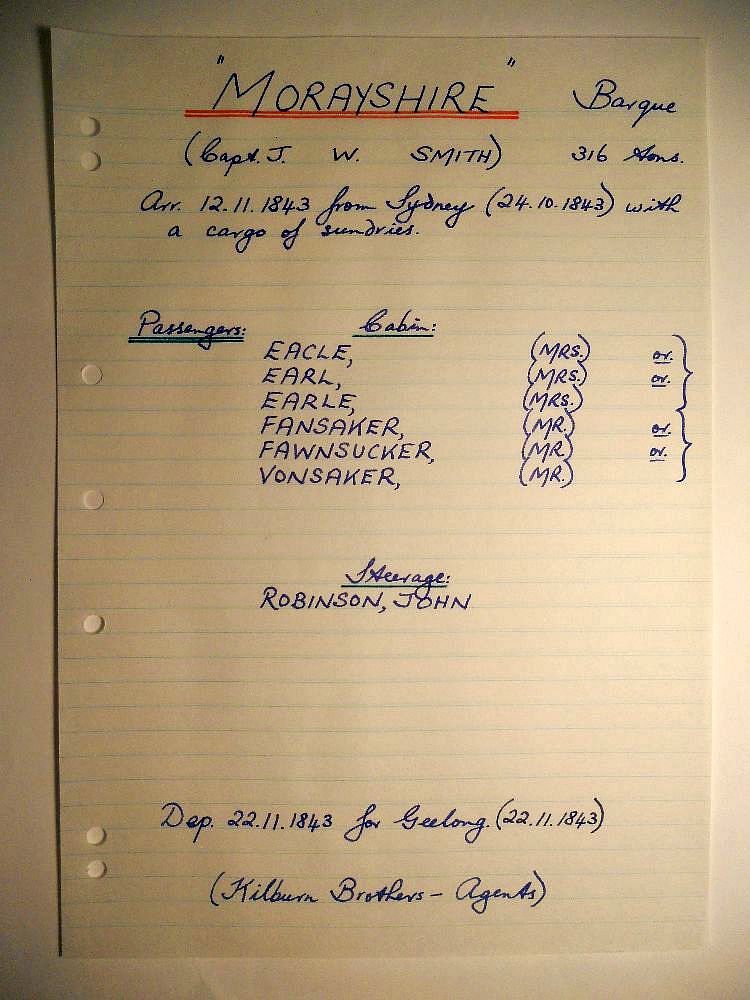 "MORAYSHIRE" Barque
(Capt. J. W. SMITH) 316 tons.
Arr. 12.11.1843 from Sydney (24.10.1843) with
a cargo of sundries.
Passengers: Cabin:
EACLE, (MRS.) or.
EARL, (MRS.) or.
EARLE, (MRS.)
FANSAKER, (MR.) or.
FAWNSUCKER, (MR.) or.
VONSAKER, (MR.)
Steerage:
ROBINSON, JOHN
Dep. 22.11.1843 for Geelong. (22.11.1843)
(Kilburn Brothers - Agents)